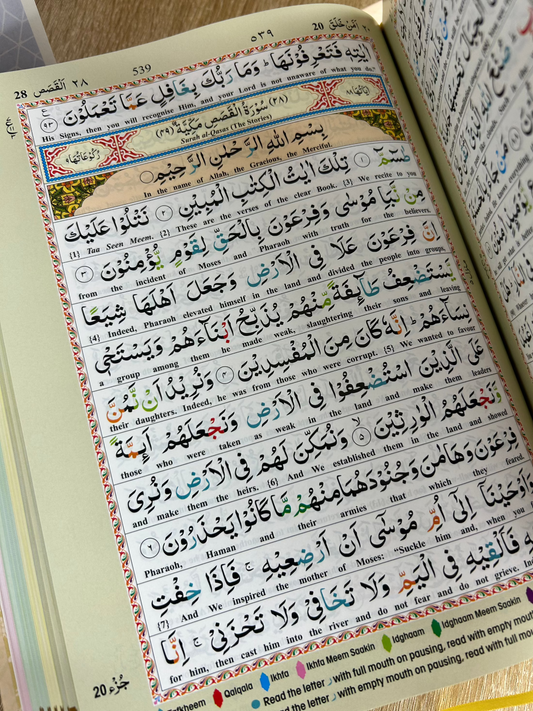 28 اَلْقَصَص ٢٨
539
٥٣٩
20 اَمَّنْ خَلَقَ ٢٠
اٰيٰتِهٖ فَتَعْرِفُوْنَهَا ؕ وَمَا رَبُّكَ بِغَافِلٍ عَمَّا تَعْمَلُوْنَ ﴿٩٣﴾
His Signs, then you will recognise Him, and your Lord is not unaware of what you do."
(٢٨) سُوْرَةُ الْقَصَصِ مَكِّيَّةٌ (٤٩)
Surah al-Qasas (The Stories)
بِسْمِ اللهِ الرَّحْمٰنِ الرَّحِيْمِ
In the name of Allah, the Gracious, the Merciful.
طٰسٓمّٓ ﴿١﴾ تِلْكَ اٰيٰتُ الْكِتٰبِ الْمُبِيْنِ ﴿٢﴾ نَتْلُوْا عَلَيْكَ
[1] Taa Seen Meem. [2] These are the verses of the clear Book. [3] We recite to you
مِنْ نَّبَاِ مُوْسٰى وَفِرْعَوْنَ بِالْحَقِّ لِقَوْمٍ يُّؤْمِنُوْنَ ﴿٣﴾
from the incident of Moses and Pharaoh with truth for the believers.
اِنَّ فِرْعَوْنَ عَلَا فِى الْاَرْضِ وَجَعَلَ اَهْلَهَا شِيَعًا
[4] Indeed, Pharaoh elevated himself in the land and divided the people into groups,
يَّسْتَضْعِفُ طَآئِفَةً مِّنْهُمْ يُذَبِّحُ اَبْنَآءَهُمْ وَيَسْتَحْىٖ
a group among them he made weak, slaughtering their sons and leaving
نِسَآءَهُمْ ؕ اِنَّهٗ كَانَ مِنَ الْمُفْسِدِيْنَ ﴿٤﴾ وَنُرِيْدُ اَنْ نَّمُنَّ
their daughters. Indeed, he was from those who were corrupt. [5] We wanted to favour
عَلَى الَّذِيْنَ اسْتُضْعِفُوْا فِى الْاَرْضِ وَنَجْعَلَهُمْ اَئِمَّةً
those who were taken as weak in the land and make them leaders
وَّنَجْعَلَهُمُ الْوٰرِثِيْنَ ﴿٥﴾ وَنُمَكِّنَ لَهُمْ فِى الْاَرْضِ وَنُرِىَ
and make them the heirs. [6] And We established them in the land and showed
فِرْعَوْنَ وَهَامٰنَ وَجُنُوْدَهُمَا مِنْهُمْ مَّا كَانُوْا يَحْذَرُوْنَ ﴿٦﴾
Pharaoh, Haman and their armies that which they feared.
وَاَوْحَيْنَآ اِلٰٓى اُمِّ مُوْسٰٓى اَنْ اَرْضِعِيْهِ ۚ فَاِذَا خِفْتِ
[7] And We inspired the mother of Moses: "Suckle him and, when you
فَاَلْقِيْهِ فِى الْيَمِّ وَلَا تَخَافِىْ وَلَا تَحْزَنِىْ ۚ اِنَّا
for him, then cast him into the river and do not fear and do not grieve.
20 جُزْء
Qalqala Ikhfa Ikhfa Meem Saakin Idghaam Idghaam Meem Saakin
Read the letter ر with full mouth on pausing, read with empty mouth
Read the letter ر with empty mouth on pausing, read with full